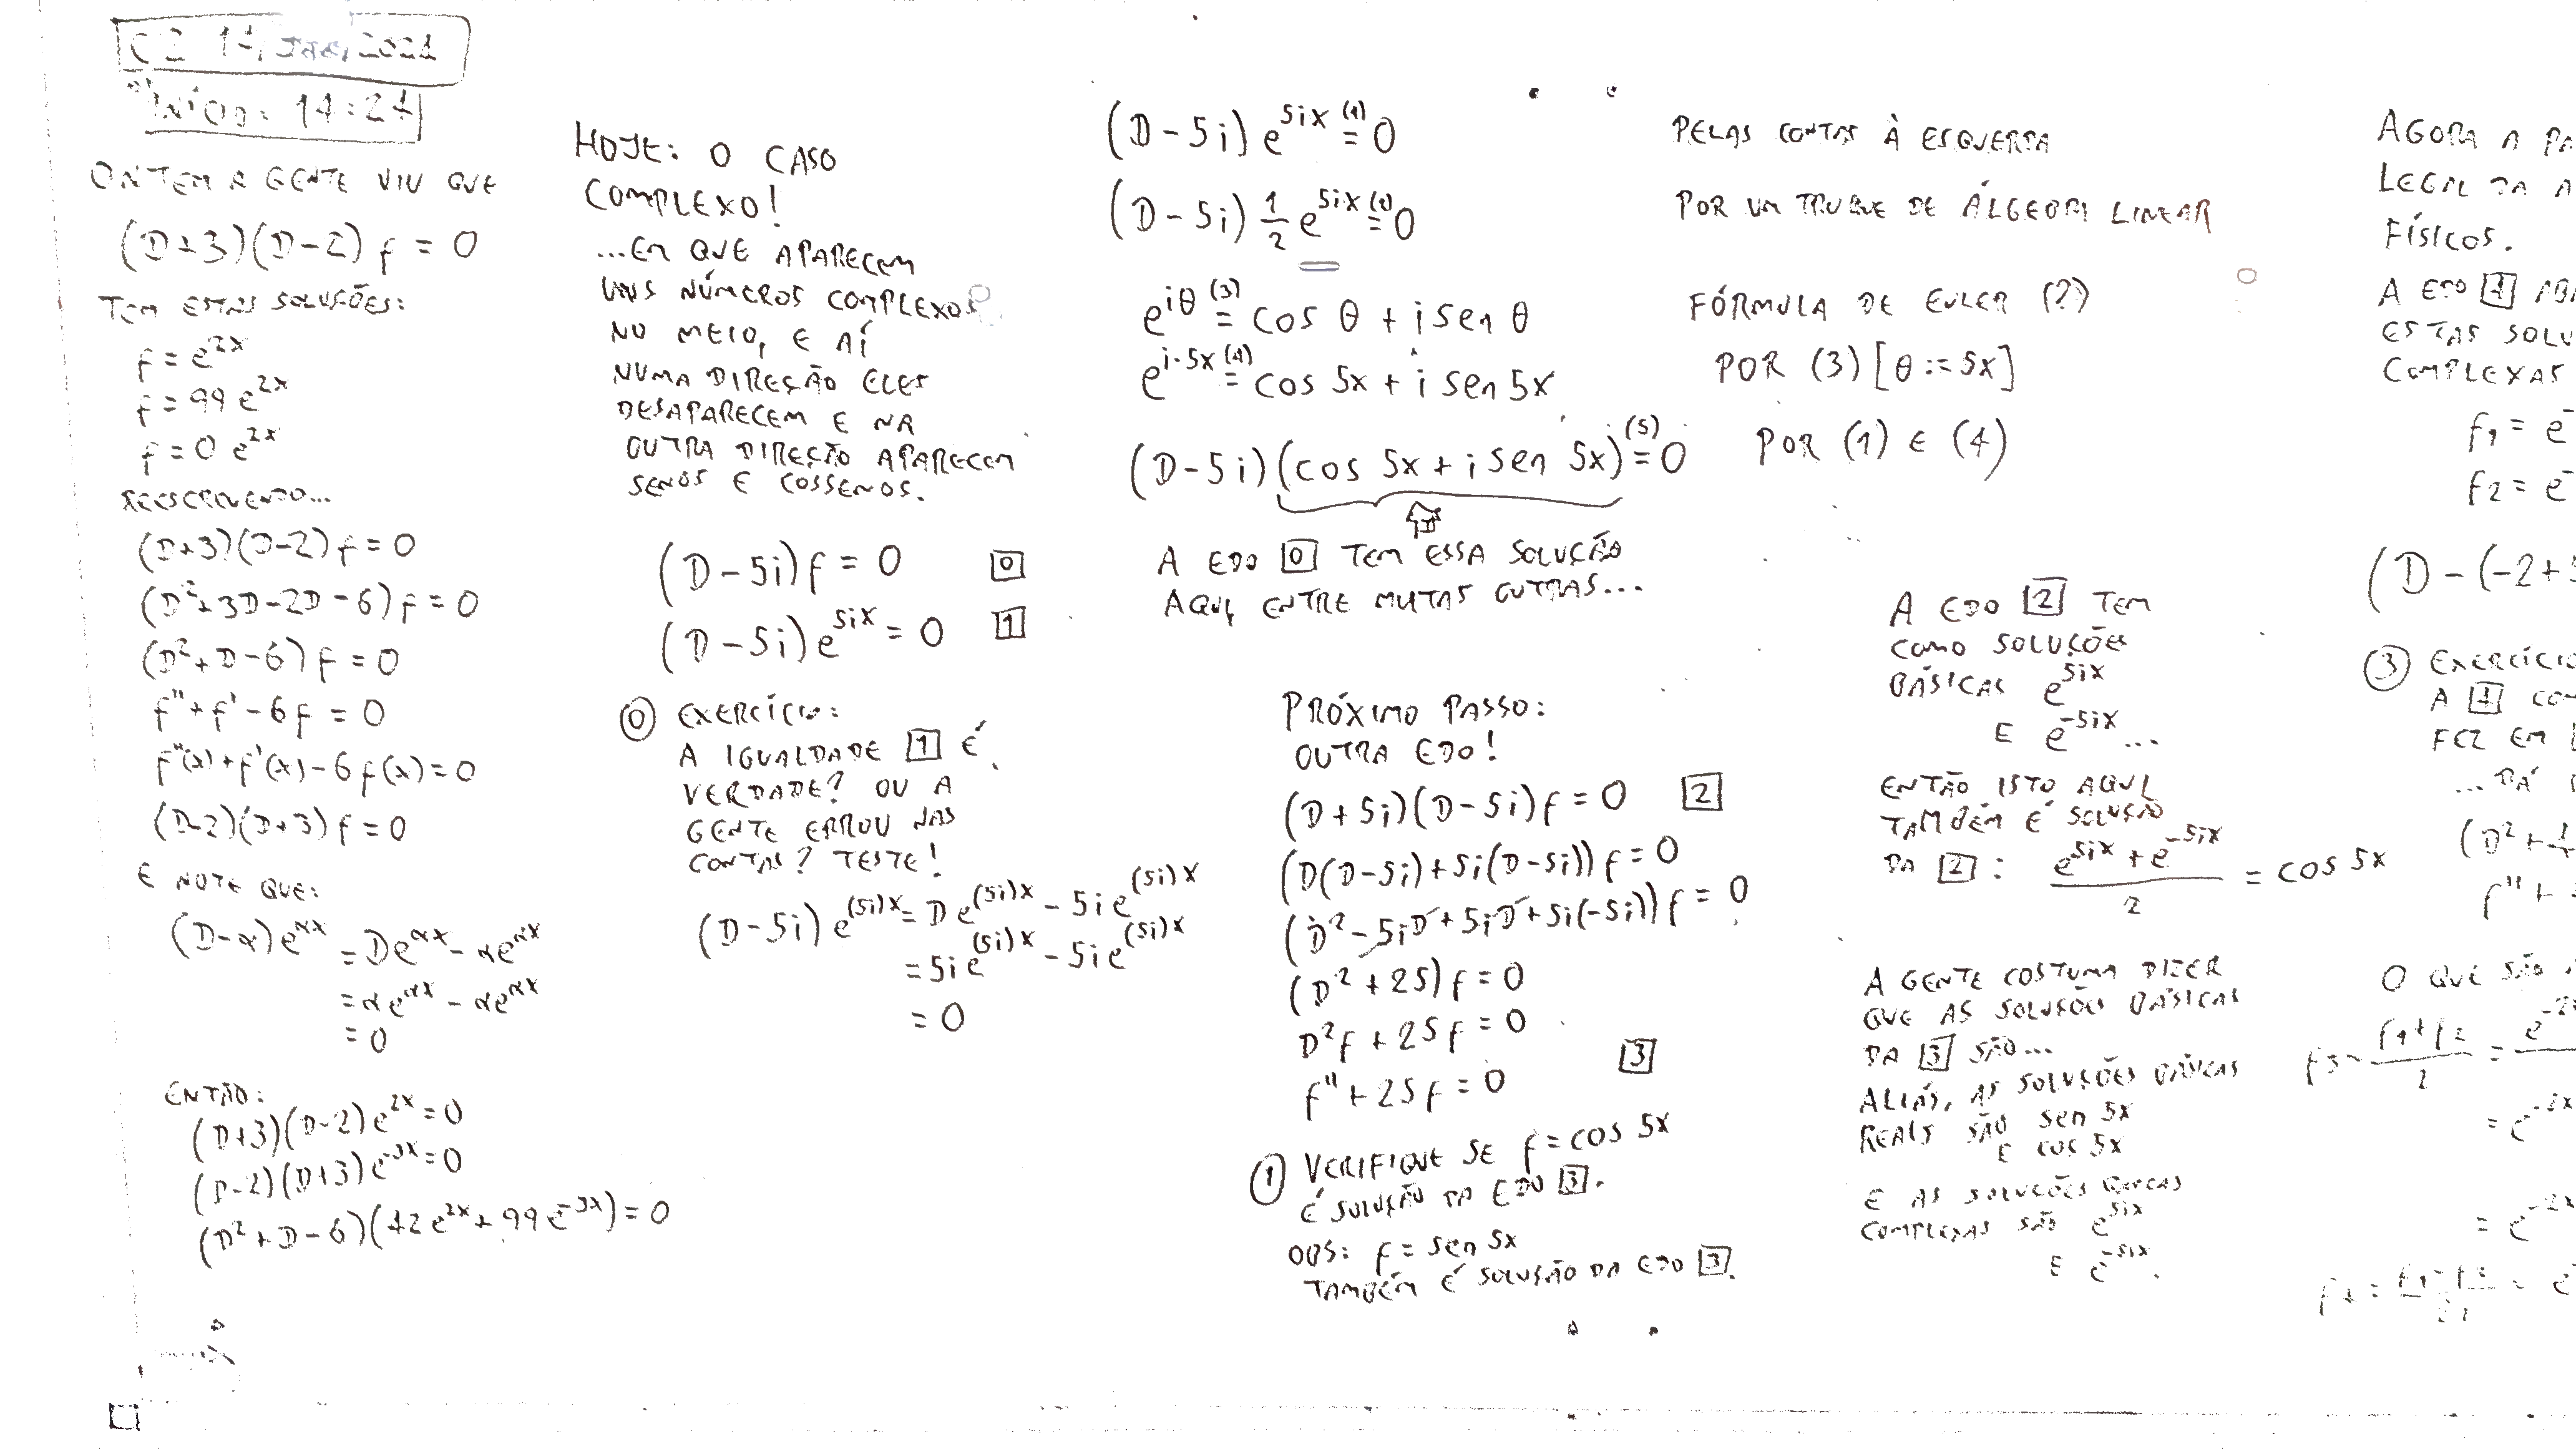 C2 2021
INÍCIO: 14:27
ONTEM A GENTE VIU QUE
(D+3)(D-2) f = 0
TEM ESTAS SOLUÇÕES:
f = e^{2x}
f = 99 e^{2x}
f = 0 e^{2x}
REESCREVENDO...
(D+3)(D-2) f = 0
(D²+3D-2D-6) f = 0
(D²+D-6) f = 0
f'' + f' - 6f = 0
f''(x)+f'(x)-6f(x)=0
(D-2)(D+3) f = 0
E NOTE QUE:
(D-α)e^{αx} = De^{αx} - αe^{αx}
= αe^{αx} - αe^{αx}
= 0
ENTÃO:
(D+3)(D-2)e^{2x} = 0
(D-2)(D+3)e^{-3x} = 0
(D²+D-6)(42e^{2x}+99e^{-3x}) = 0
HOJE: O CASO
COMPLEXO!
...EM QUE APARECEM
UNS NÚMEROS COMPLEXOS
NO MEIO, E AÍ
NUMA DIREÇÃO ELES
DESAPARECEM E NA
OUTRA DIREÇÃO APARECEM
SENOS E COSSENOS.
(D-5i) f = 0 [0]
(D-5i) e^{5ix} = 0 [1]
(0) EXERCÍCIO:
A IGUALDADE [1] É
VERDADE? OU A
GENTE ERROU NAS
CONTAS? TESTE!
(D-5i) e^{(5i)x} = De^{(5i)x} - 5ie^{(5i)x}
= 5ie^{(5i)x} - 5ie^{(5i)x}
= 0
(D-5i) e^{5ix} =(1) 0 PELAS CONTAS À ESQUERDA
(D-5i) 1/2 e^{5ix} = 0 POR UM TRUQUE DE ÁLGEBRA LINEAR
e^{iθ} =(3) cos θ + i sen θ FÓRMULA DE EULER (?)
e^{i·5x} =(4) cos 5x + i sen 5x POR (3) [θ := 5x]
(D-5i)(cos 5x + i sen 5x) =(5) 0 POR (1) E (4)
A EDO [0] TEM ESSA SOLUÇÃO
AQUI, ENTRE MUITAS OUTRAS...
PRÓXIMO PASSO:
OUTRA EDO!
(D+5i)(D-5i) f = 0 [2]
(D(D-5i)+5i(D-5i)) f = 0
(D²-5iD+5iD+5i(-5i)) f = 0
(D²+25) f = 0
D²f + 25f = 0
f'' + 25f = 0 [3]
(1) VERIFIQUE SE f = cos 5x
É SOLUÇÃO DA EDO [3].
OBS: f = sen 5x
TAMBÉM É SOLUÇÃO DA EDO [3].
A EDO [2] TEM
COMO SOLUÇÕES
BÁSICAS e^{5ix}
E e^{-5ix}...
ENTÃO ISTO AQUI
TAMBÉM É SOLUÇÃO
DA [2]: (e^{5ix} + e^{-5ix})/2 = cos 5x
A GENTE COSTUMA DIZER
QUE AS SOLUÇÕES BÁSICAS
DA [3] SÃO...
ALIÁS, AS SOLUÇÕES BÁSICAS
REAIS SÃO sen 5x
E cos 5x
E AS SOLUÇÕES BÁSICAS
COMPLEXAS SÃO e^{5ix}
E e^{-5ix}.
AGORA A PA
LEGAL DA A
FÍSICOS.
A EDO [4] ABA
ESTAS SOLU
COMPLEXAS
f₁ = e^-
f₂ = e^-
(D-(-2+
(3) EXERCÍCIO
A [4] CO
FEZ EM
...DÁ
(D²+4
f'' +
O QUE SÃO
f₃ = (f₁+f₂)/2 = e^{-2x}
= e^{-2x}
= e^{-2x}